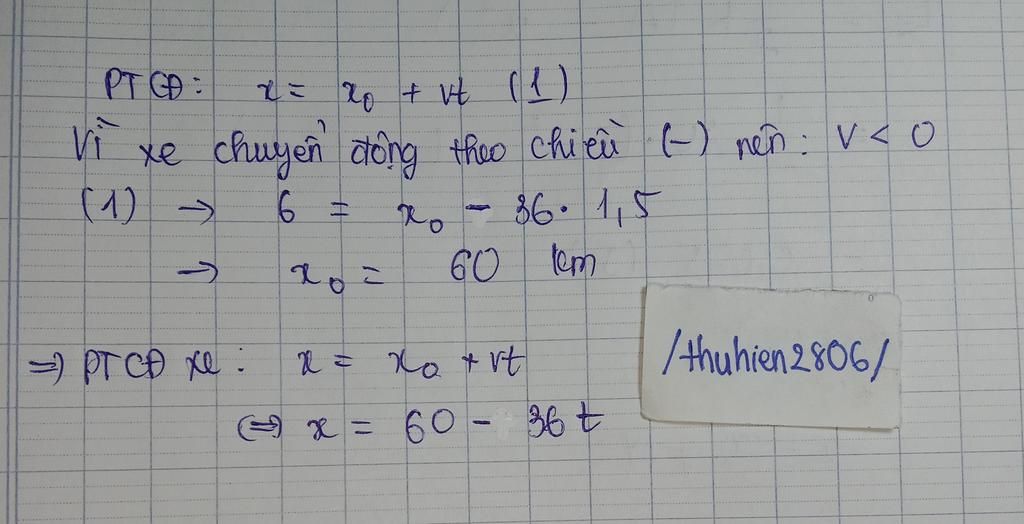 PTCĐ: x = x₀ + vt (1)
Vì xe chuyển động theo chiều (-) nên: v < 0
(1) → 6 = x₀ - 36. 1,5
→ x₀ = 60 km
⇒ PTCĐ xe: x = x₀ + vt
⇔ x = 60 - 36 t
/thuhien2806/